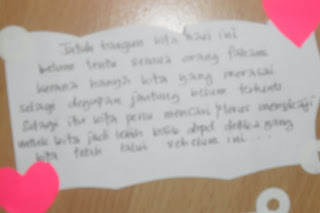 Jatuh bangun kita hari ini
belum tentu semua orang faham
kerana hanya kita yang merasai
selagi degupan jantung belum terhenti
selagi itu kita perlu mencari / terus mengkaji
untuk kita jadi lebih baik drpd detik yang
kita telah lalui sebelum ini...